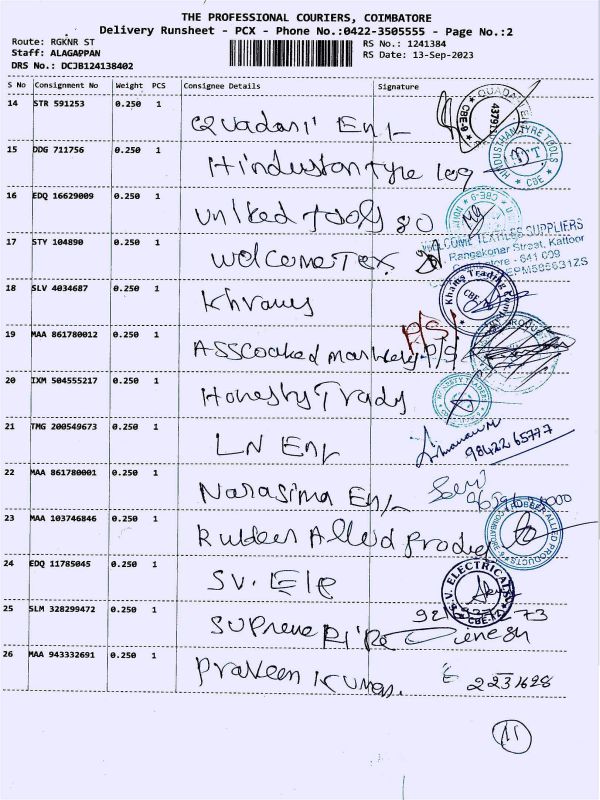 THE PROFESSIONAL COURIERS, COIMBATORE
Delivery Runsheet - PCX - Phone No.:0422-3505555 - Page No.:2
Route: RGKNR ST
Staff: ALAGAPPAN
DRS No.: DCJB124138402
RS No.: 1241384
RS Date: 13-Sep-2023
S No Consignment No Weight PCS Consignee Details Signature
14 STR 591253 0.250 1
Quadari Eni
15 DDG 711756 0.250 1
Hinduston tyre
HINDUSTHAN TYRE TOOLS
CBE
16 EDQ 16629009 0.250 1
united tools 80
17 STY 104890 0.250 1
welcome Tex
WELCOME TEXTILES SUPPLIERS
Rangakonar Street, Kattoor
641 009
18 SLV 4034687 0.250 1
Khraus
Khams Trading
19 MAA 861780012 0.250 1
P/S!
P/S!
20 IXM 504555217 0.250 1
Honesty Trady
21 TMG 200549673 0.250 1
LN Eni
98422 65777
22 MAA 861780001 0.250 1
Narasima Eni
23 MAA 103746846 0.250 1
Rubber Allied Produ
ALLIED PRODUCTS
24 EDQ 11785045 0.250 1
SV. Ele
S.V. ELECTRICALS
CBE-12
25 SLM 328299472 0.250 1
Supreme Pipe
26 MAA 943332691 0.250 1
Praveen Kumar.
2231628
11